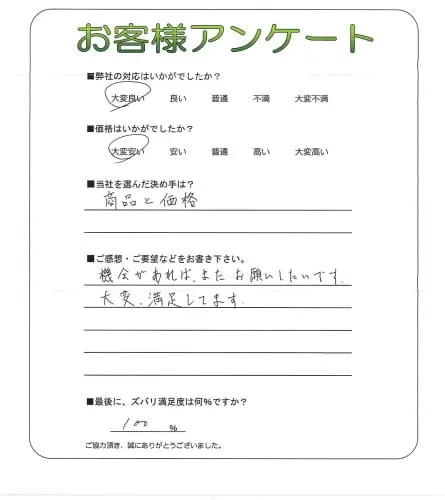 お客様アンケート
■弊社の対応はいかがでしたか?
大変良い 良い 普通 不満 大変不満
■価格はいかがでしたか?
大変安い 安い 普通 高い 大変高い
■当社を選んだ決め手は?
商品と価格
■ご感想・ご要望などをお書き下さい。
機会があれば、またお願いしたいです。
大変、満足してます。
■最後に、ズバリ満足度は何%ですか?
100 %
ご協力頂き、誠にありがとうございました。